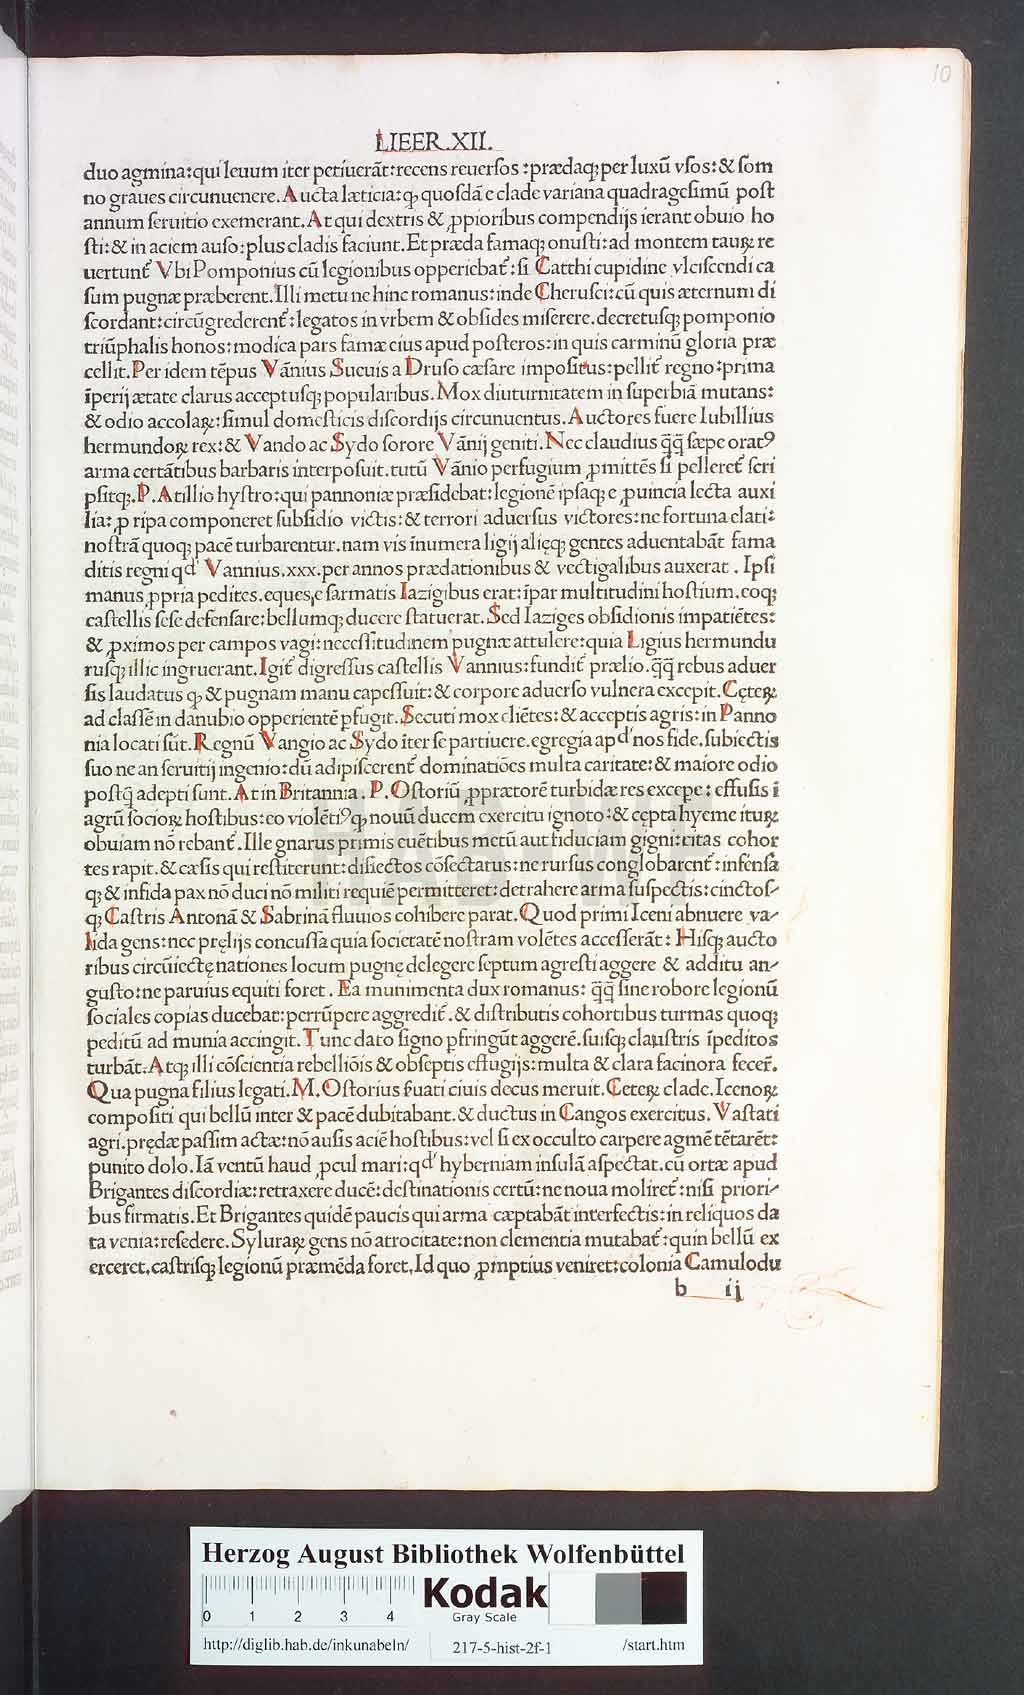 10
LIEER.XII.
duo agmina:qui leuum iter petiuerāt:recens reuersos :prædaqꝫ per luxū vsos:& som
no graues circunuenere.Aucta læticia:qꝫ quosdā e clade variana quadragesimū post
annum seruitio exemerant.At qui dextris & ꝓpioribus compendijs ierant obuio ho
sti:& in aciem auso:plus cladis faciunt.Et præda famaqꝫ onusti:ad montem tauꝝ re
uertunt᷑ Vbi Pomponius cū legionibus opperiebat᷑:si Catthi cupidine vlciscendi ca
sum pugnæ præberent.Illi metu ne hinc romanus:inde Cherusci:cū quis æternum di
scordant:circūgrederent᷑:legatos in vrbem & obsides miserere.decretusqꝫ pomponio
triūphalis honos:modica pars famæ eius apud posteros:in quis carminū gloria præ
cellit.Per idem tēpus Vānius Sueuis a Druso cæsare impositus:pellit᷑ regno:prima
īperij ætate clarus acceptusqꝫ popularibus.Mox diuturnitatem in superbiā mutans:
& odio accolaꝝ:simul domesticis discordijs circunuentus.Auctores fuere Iubillius
hermundoꝝ rex:& Vando ac Sydo sorore Vānij geniti.Nec claudius q̄q̄ sæpe oratꝰ
arma certātibus barbaris interposuit.tutū Vānio perfugium ꝓmittēs si pelleret᷑ scri
psitqꝫ.P.Atillio hystro:qui pannoniæ præsidebat:legionē ipsaqꝫ e ꝓuincia lecta auxi
lia:ꝓ ripa componeret subsidio victis:& terrori aduersus victores:ne fortuna elati:
nostrā quoqꝫ pacē turbarentur.nam vis īnumera ligij alięqꝫ gentes aduentabāt fama
ditis regni qd' Vannius.xxx.per annos prædationibus & vectigalibus auxerat . Ipsi
manus ꝓpria pedites.eques,e sarmatis Iazigibus erat:īpar multitudini hostium.eoqꝫ
castellis sese defensare:bellumqꝫ ducere statuerat.Sed Iaziges obsidionis impatiētes:
& ꝓximos per campos vagi:necessitudinem pugnæ attulere:quia Ligius hermundu
rusqꝫ illic ingruerant.Igit᷑ digressus castellis Vannius:fundit᷑ prælio.q̄q̄ rebus aduer
sis laudatus qꝫ & pugnam manu capessuit:& corpore aduerso vulnera excepit.Cęteꝝ
ad classē in danubio opperientē ꝑfugit.Secuti mox cliētes:& acceptis agris:in Panno
nia locati sūt.Regnū Vangio ac Sydo iter se partiuere.egregia apd' nos fide.subiectis
suo ne an seruitij ingenio:dū adipiscerent᷑ dominatiōes multa caritate:& maiore odio
postq̄ adepti sunt.At in Britannia.P.Ostoriū ꝓprætorē turbidæ res excepe: effusis ī
agrū socioꝝ hostibus:eo violētiꝰ qꝫ nouū ducem exercitu ignoto:& cępta hyeme ituꝝ
obuiam nō rebant᷑.Ille gnarus primis euētibus metū aut fiduciam gigni:citas cohor
tes rapit.& cæsis qui restiterunt:disiectos cōsectatus:ne rursus conglobarent᷑:infensa
qꝫ & infida pax nō duci nō militi requiē permitteret:detrahere arma suspectis:cinctos-
qꝫ Castris Antonā & Sabrinā fluuios cohibere parat.Quod primi Iceni abnuere va-
lida gens:nec pręlijs concussa quia societatē nostram volētes accesserāt: Hisqꝫ aucto
ribus circūiectę nationes locum pugnę delegere septum agresti aggere & additu an-
gusto:ne paruius equiti foret. Ea munimenta dux romanus: q̄q̄ sine robore legionū
sociales copias ducebat:perrūpere aggredit᷑.& distributis cohortibus turmas quoqꝫ
peditū ad munia accingit.Tunc dato signo ꝑfringūt aggerē.suisqꝫ claustris īpeditos
turbāt.Atqꝫ illi cōscientia rebelliōis & obseptis effugijs:multa & clara facinora fecer̄.
Qua pugna filius legati.M.Ostorius ẜuati ciuis decus meruit.Ceteꝝ clade.Icenoꝝ
compositi qui bellū inter & pacē dubitabant.& ductus in Cangos exercitus.Vastati
agri.prędæ passim actæ:nō ausis aciē hostibus:vel si ex occulto carpere agmē tētarēt:
punito dolo.Iā ventū haud ꝓcul mari:qd' hyberniam insulā aspectat.cū ortæ apud
Brigantes discordiæ:retraxere ducē:destinationis certū:ne noua moliret᷑:nisi priori-
bus firmatis.Et Brigantes quidē paucis qui arma cæptabāt interfectis:in reliquos da
ta venia:resedere.Syluraꝝ gens nō atrocitate:non clementia mutabat᷑:quin bellū ex
erceret,castrisqꝫ legionū præmēda foret,Id quo ꝓmptius veniret:colonia Camulodu
b ij
HAB-WF
Herzog August Bibliothek Wolfenbüttel
0 1 2 3 4
Kodak
Gray Scale
http://diglib.hab.de/inkunabeln/ 217-5-hist-2f-1 /start.htm